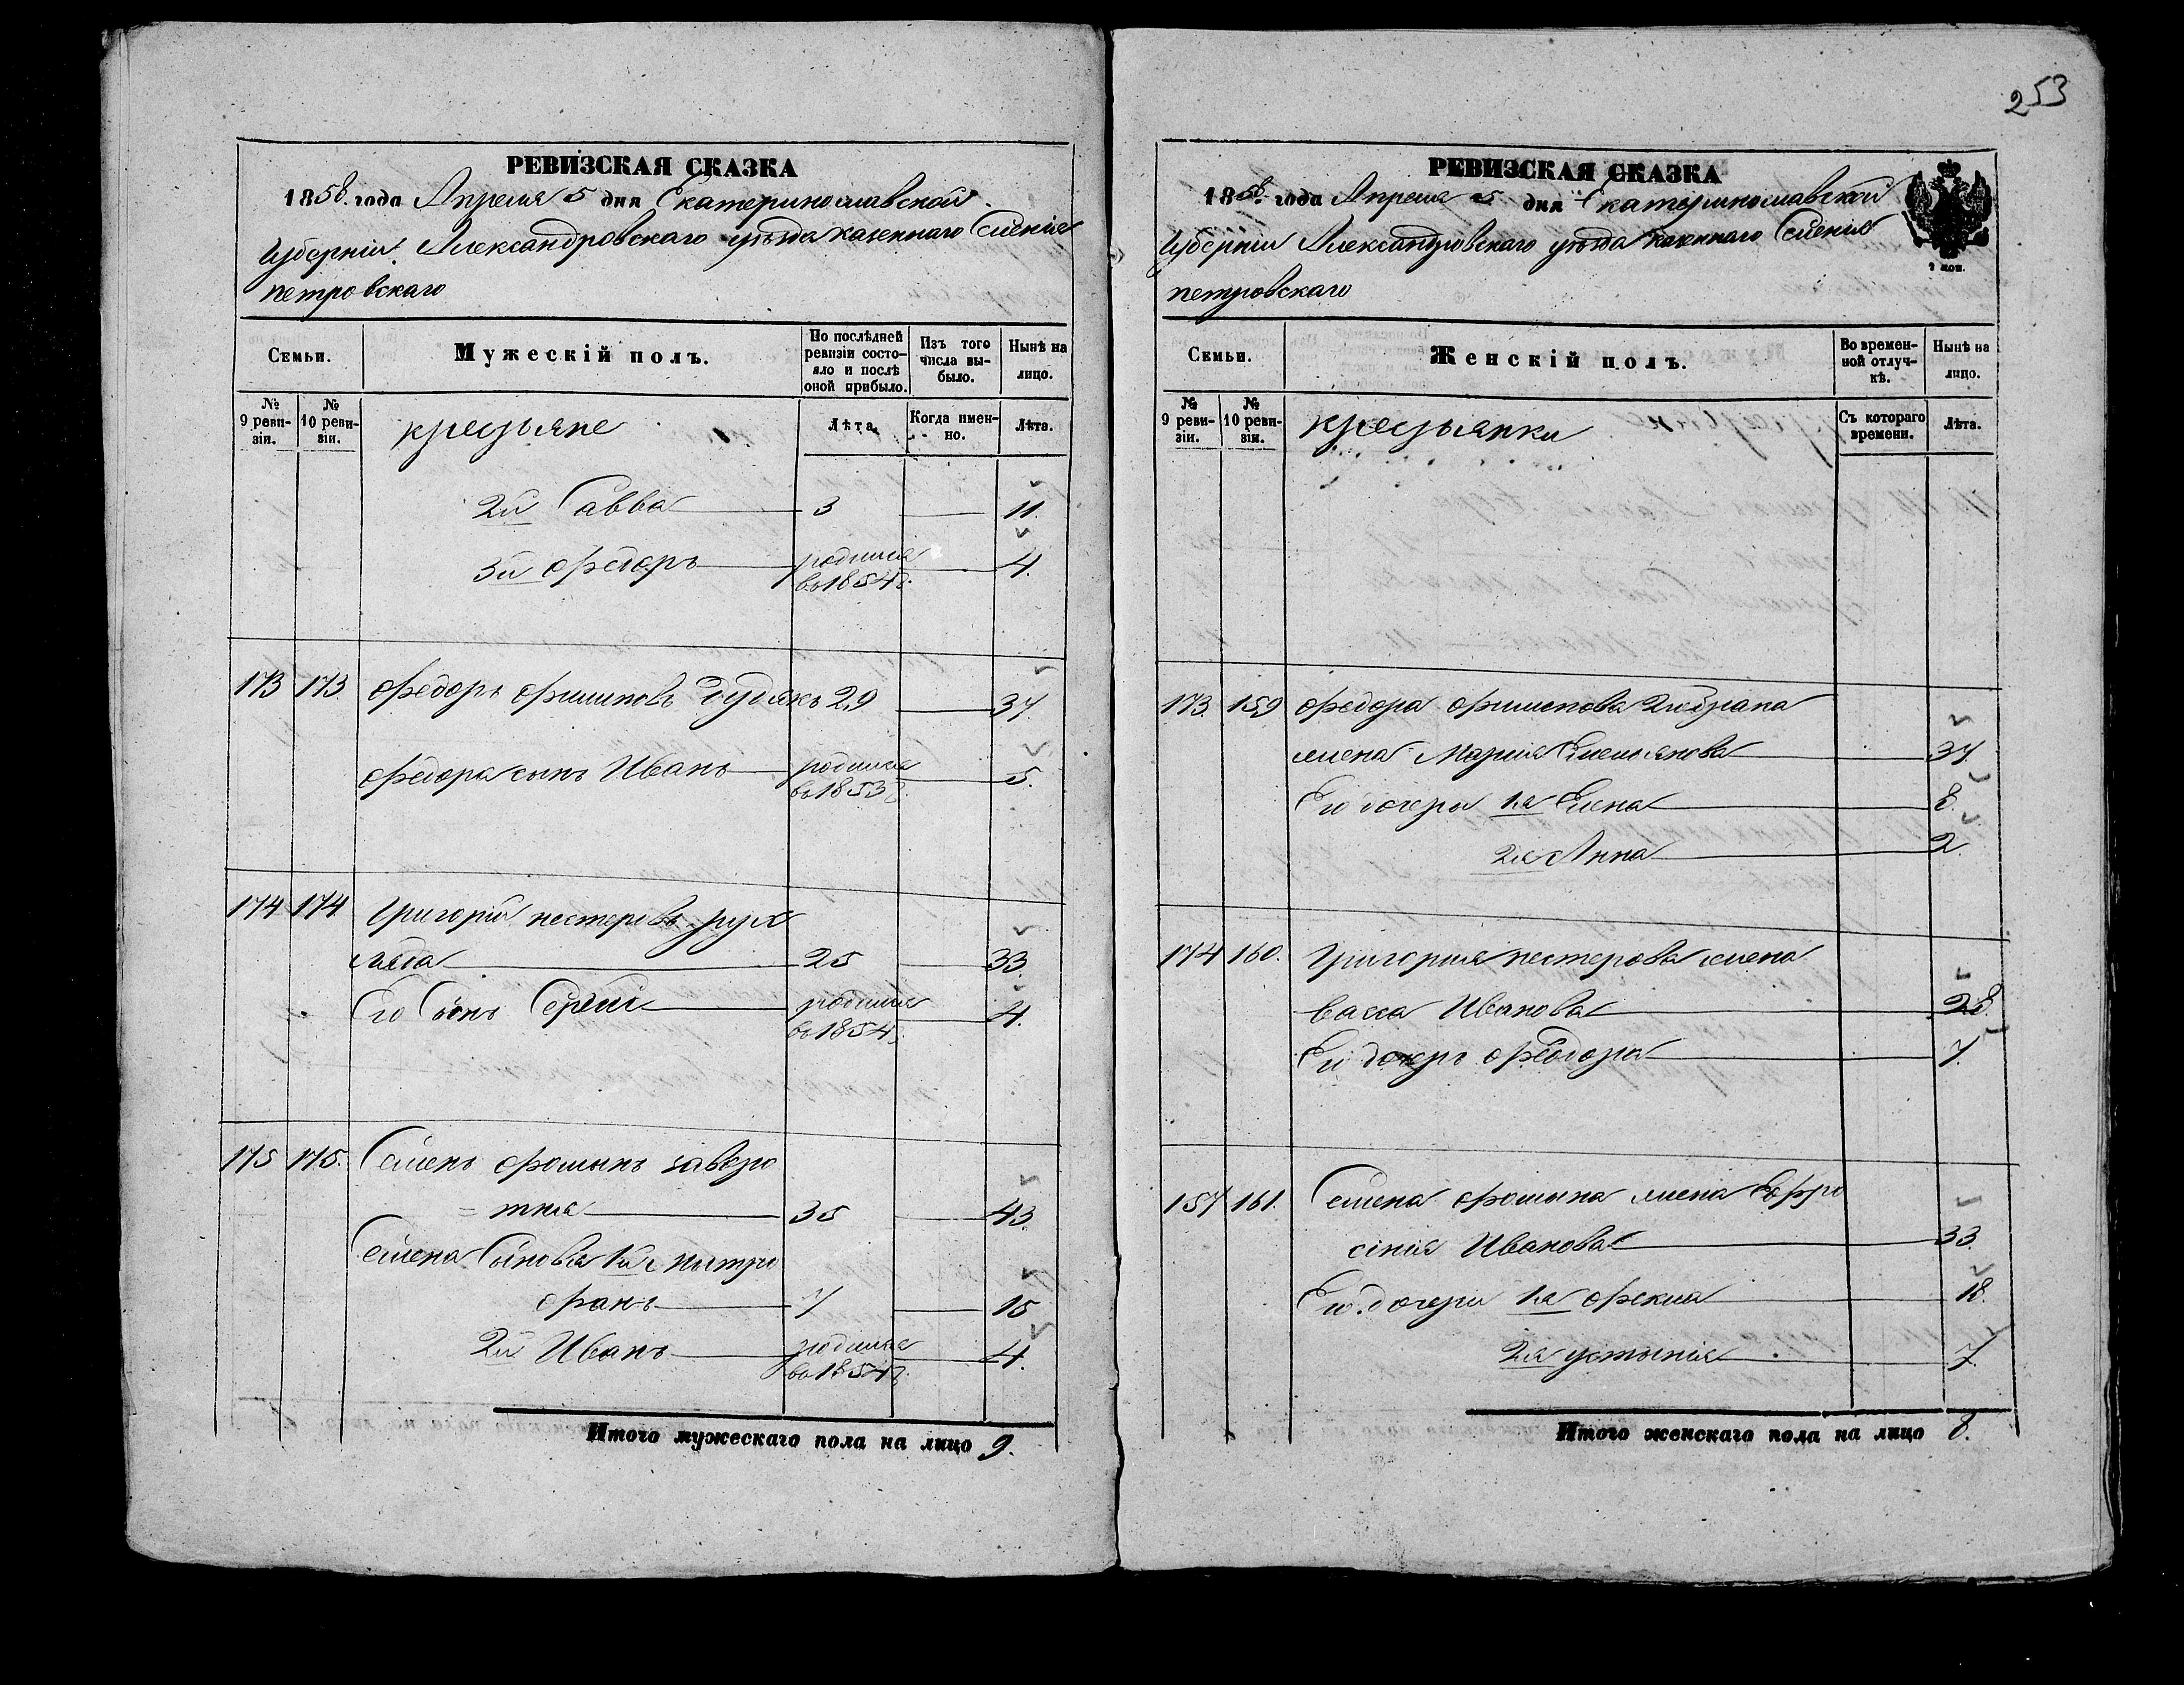 253
РЕВИЗСКАЯ СКАЗКА
1858 года Апреля 5 дня Екатеринославской
Губерніи Александровскаго уѣзда казеннаго Селенія
петровскаго
Семьи.
Мужескій полъ.
По послѣдней ревизіи состояло и послѣ оной прибыло.
Изъ того числа выбыло.
Нынѣ на лицо.
№ 9 ревизіи.
№ 10 ревизіи.
крестьяне
Лѣта.
Когда именно.
Лѣта.
2й Савва 3 11.
3й Федоръ родился 4.
въ 1854 г.
173 173. Федоръ Филиповъ 29 37.
Федора сынъ Иванъ родился 5.
въ 1853 г.
174 174 Григорій нестеровъ рух
ляда 25 33.
Его Сынъ родился 4.
въ 1854 г.
175 175. Семенъ Фоминъ заворо
= тня 35 43.
Семена Сыновья 1й митро
фанъ 7 15
2й Иванъ родился 4.
въ 1854 г.
Итого мужескаго пола на лицо 9.
РЕВИЗСКАЯ СКАЗКА
1858 года Апреля 5 дня Екатеринославской
Губерніи Александровскаго уѣзда казеннаго Селенія
петровскаго
Семьи.
Женскій полъ.
Во временной отлучкѣ.
Нынѣ на лицо.
№ 9 ревизіи.
№ 10 ревизіи.
крестьянки
Съ котораго времени.
Лѣта.
173. 159 Федора Филипова
жена Мария Емельянова 37.
Его дочери 1я Елена 8.
2я Анна 2.
174 160. Григория нестерова жена
васса Иванова 28.
Его дочерь Феодора 7.
157 161. Семена Фомина жена Ефро
сінія Иванова 33.
Его дочери 1я Фекла 18.
2я устинія 7.
Итого женскаго пола на лицо 8.